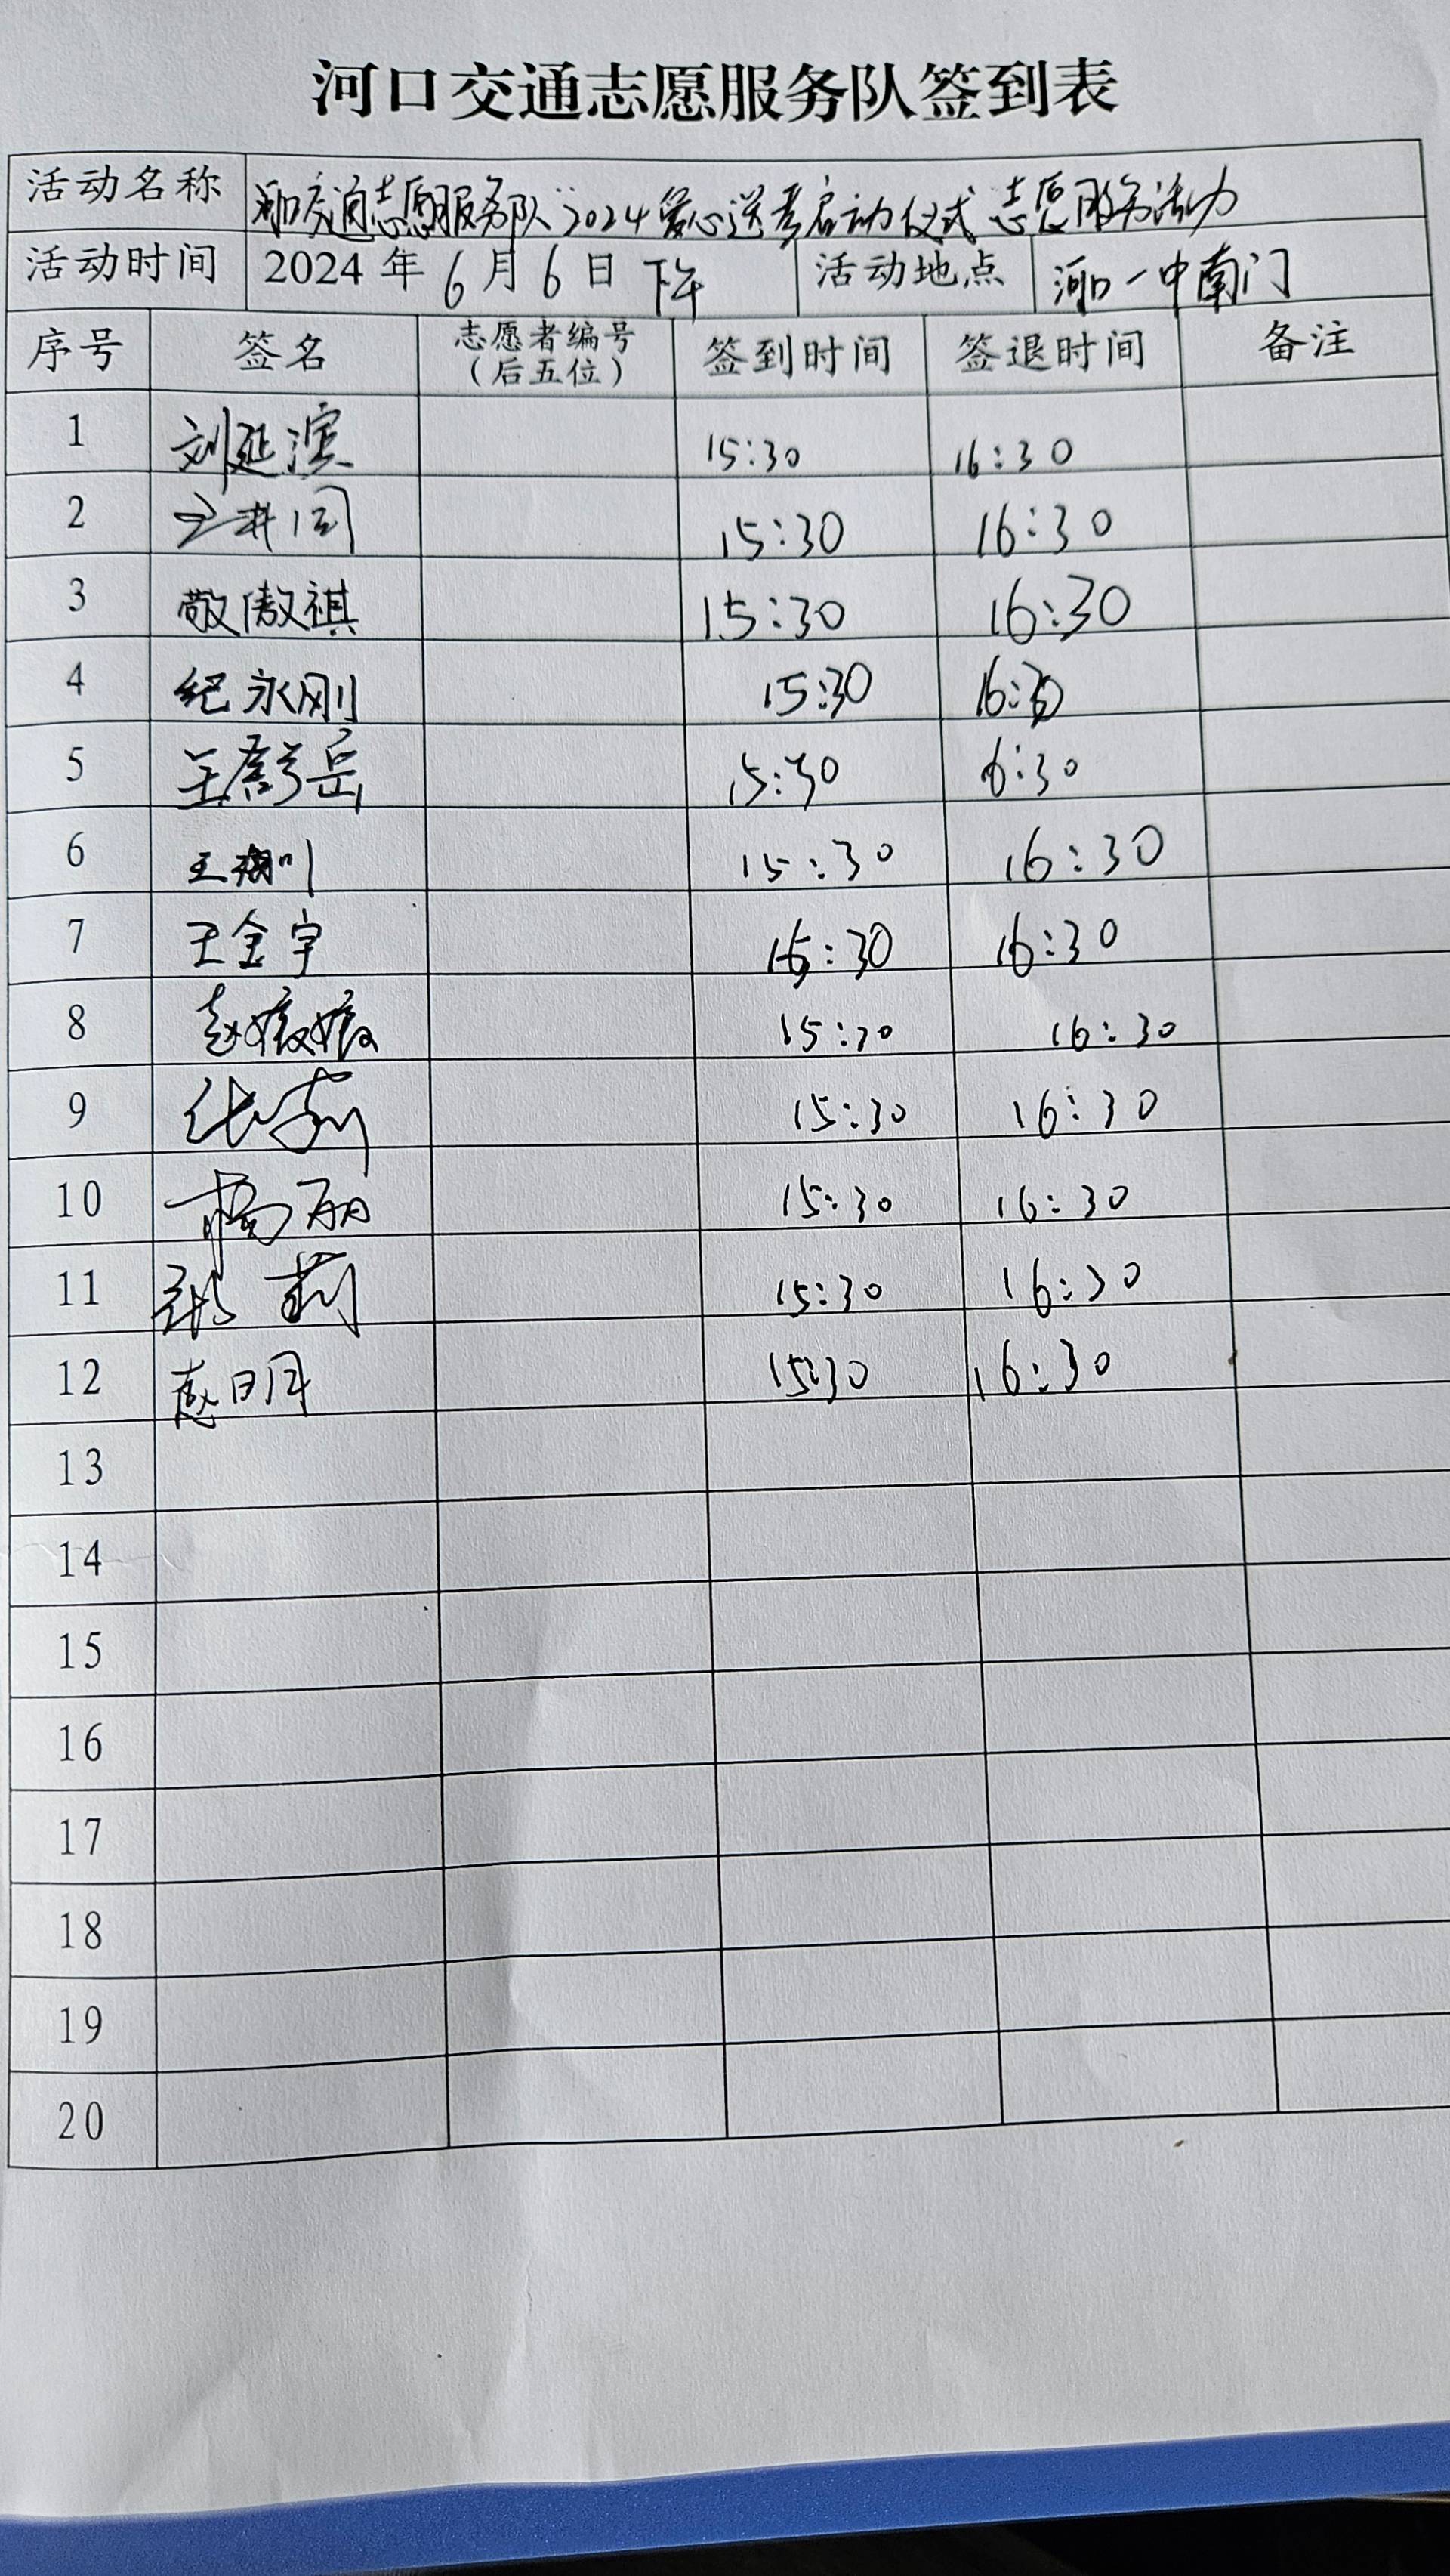 河口交通志愿服务队签到表
活动名称 河口交通志愿服务队"2024爱心送考启动仪式"志愿服务活动
活动时间 2024年6月6日下午 活动地点 河口一中南门
序号 签名 志愿者编号（后五位） 签到时间 签退时间 备注
1 刘延滨 15:30 16:30
2 15:30 16:30
3 敬傲祺 15:30 16:30
4 纪永刚 15:30 16:30
5 王 岳 15:30 16:30
6 王 15:30 16:30
7 王金宇 15:30 16:30
8 赵媛媛 15:30 16:30
9 15:30 16:30
10 杨丽 15:30 16:30
11 张莉 15:30 16:30
12 15:30 16:30
13
14
15
16
17
18
19
20